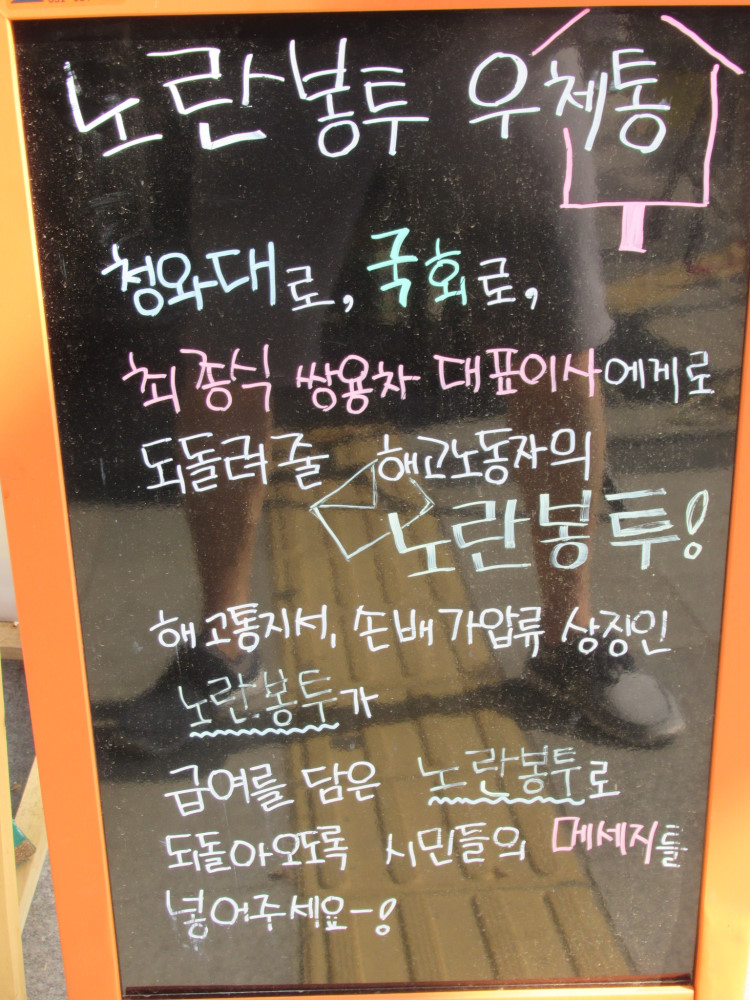 노란봉투 우체통
청와대로, 국회로,
최종식 쌍용차 대표이사에게로
되돌려줄 해고노동자의
노란봉투!
해고통지서, 손배가압류 상징인
노란봉투가
급여를 담은 노란봉투로
되돌아오도록 시민들의 메세지를
넣어주세요-!